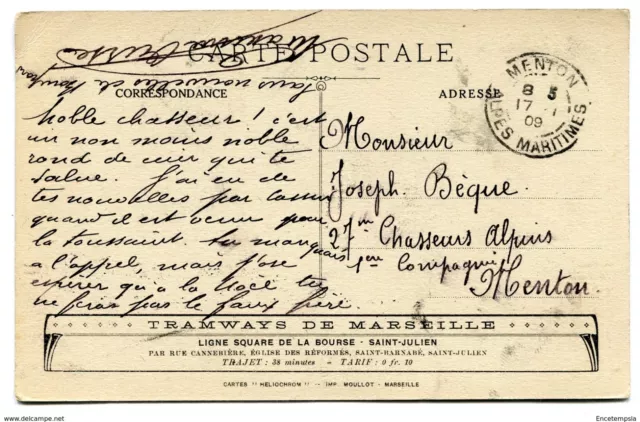 CARTE POSTALE
CORRESPONDANCE
ADRESSE
MENTON
8 5
17 - 1
09
ALPES MARITIMES
sans nouvelles de
Noble chasseur ! c'est
un non moins noble
rond de cuir qui te
salue. J'ai eu de
tes nouvelles par
quand il est venu pour
la Toussaint. tu manquais
a l'appel, mais j'ose
esperer qu'a la Noël tu
ne feras pas le faux frère ...
Monsieur
Joseph. Bèque.
27me Chasseurs Alpins
1ere Compagnie
Menton.
TRAMWAYS DE MARSEILLE
LIGNE SQUARE DE LA BOURSE - SAINT-JULIEN
PAR RUE CANNEBIÈRE, ÉGLISE DES RÉFORMÉS, SAINT-BARNABÉ, SAINT-JULIEN
TRAJET : 38 minutes — TARIF : 0 fr. 10
CARTES "HELIOCHROM" — IMP. MOULLOT - MARSEILLE
www.delcampe.net